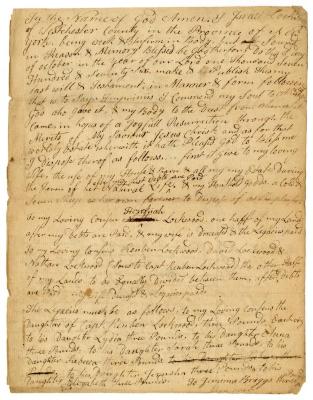 In the Name of God Amen I Israel Lockwood
of Westchester County in the Province of New
York being weak & Infirm in Body but Sound
in Reason & Memory Blessed be God therefor this Day
of october in the year of our Lord one thousand Seven
Hundred & Seventy Six make & Publish this my
Last will & Testament in Manner & form following
that is to say Imprimis I Commend my Soul to
God who gave it, & my Body to the Dust from whence it
Came in hopes of a Joyfull Resurrection through the
Merits of My Saviour Jesus Christ and as for that
worldly Estate wherewith it hath Pleased God to Bless me
I Dispose thereof as follows first I give to my loving
wife the use of my House & farm & all my Estate During
the Term of her Natural Life & my
forever to Dispose of as
to my Loving Cousin Hezekiah Lockwood one half of my Land
after my debts are Paid & my wife is Deceased & the Legacies paid
to my loving Cousins Reuben Lockwood David Lockwood &
Nathan Lockwood (Sons to Capt Reuben Lockwood) the other Half
of my Lands to be Equally Divided between them after debts
are Paid & Legacies paid
The Legacies must be as follows, to my Loving Cousins the
Daughters of Capt Reuben Lockwood three Pounds
to his Daughter Lydia three Pounds, to his Daughter
three Pounds to his Daughter Sarah three Pounds to his
Daughter three Pounds
to his Daughter three Pounds to his
Daughter Elizabeth three Pounds to Jemima Briggs three